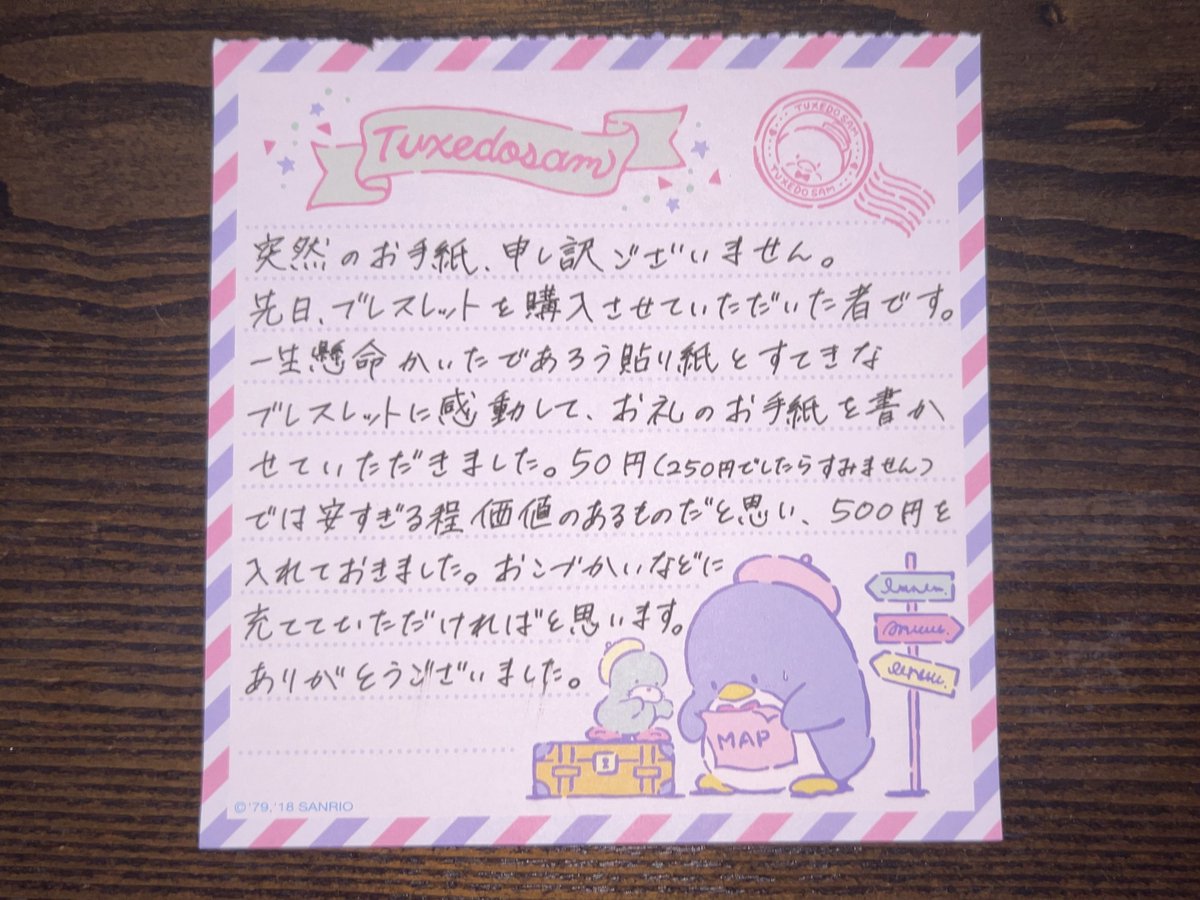 Tuxedosam
TUXEDO SAM
TUXEDO SAM
突然のお手紙、申し訳ございません。
先日、ブレスレットを購入させていただいた者です。
一生懸命かいたであろう貼り紙とすてきな
ブレスレットに感動して、お礼のお手紙を書か
せていただきました。50円(250円でしたらすみません)
では安すぎる程価値のあるものだと思い、500円を
入れておきました。おこづかいなどに
充てていただければと思います。
ありがとうございました。
MAP
©'79,'18 SANRIO